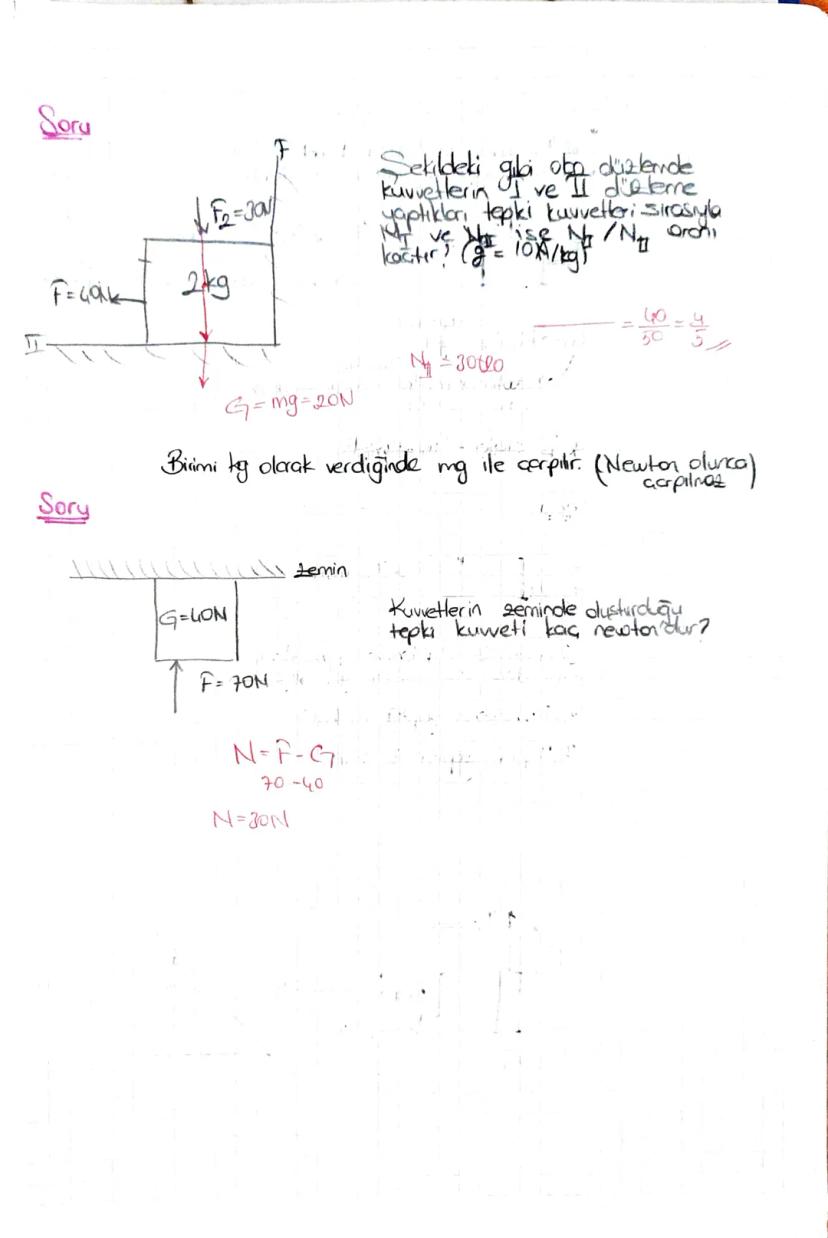 Soru
F
F₂=30N
F=40N
2kg
II
G=mg=20N
Şekildeki gibi olan düzlemde
kuvvetlerin I ve II düzleme
yaptıkları tepki kuvvetleri sırasıyla
N_I ve N_II ise N_I / N_II oranı
kaçtır? (g = 10N/kg)
= 40/50 = 4/5
N_II = 30
Birimi kg olarak verdiğinde mg ile çarpılır. (Newton olunca
çarpılmaz)
Soru
zemin
G=40N
F=70N
Kuvvetlerin zeminde oluşturduğu
tepki kuvveti kaç newton'dur?
N=F-G
70-40
N=30N